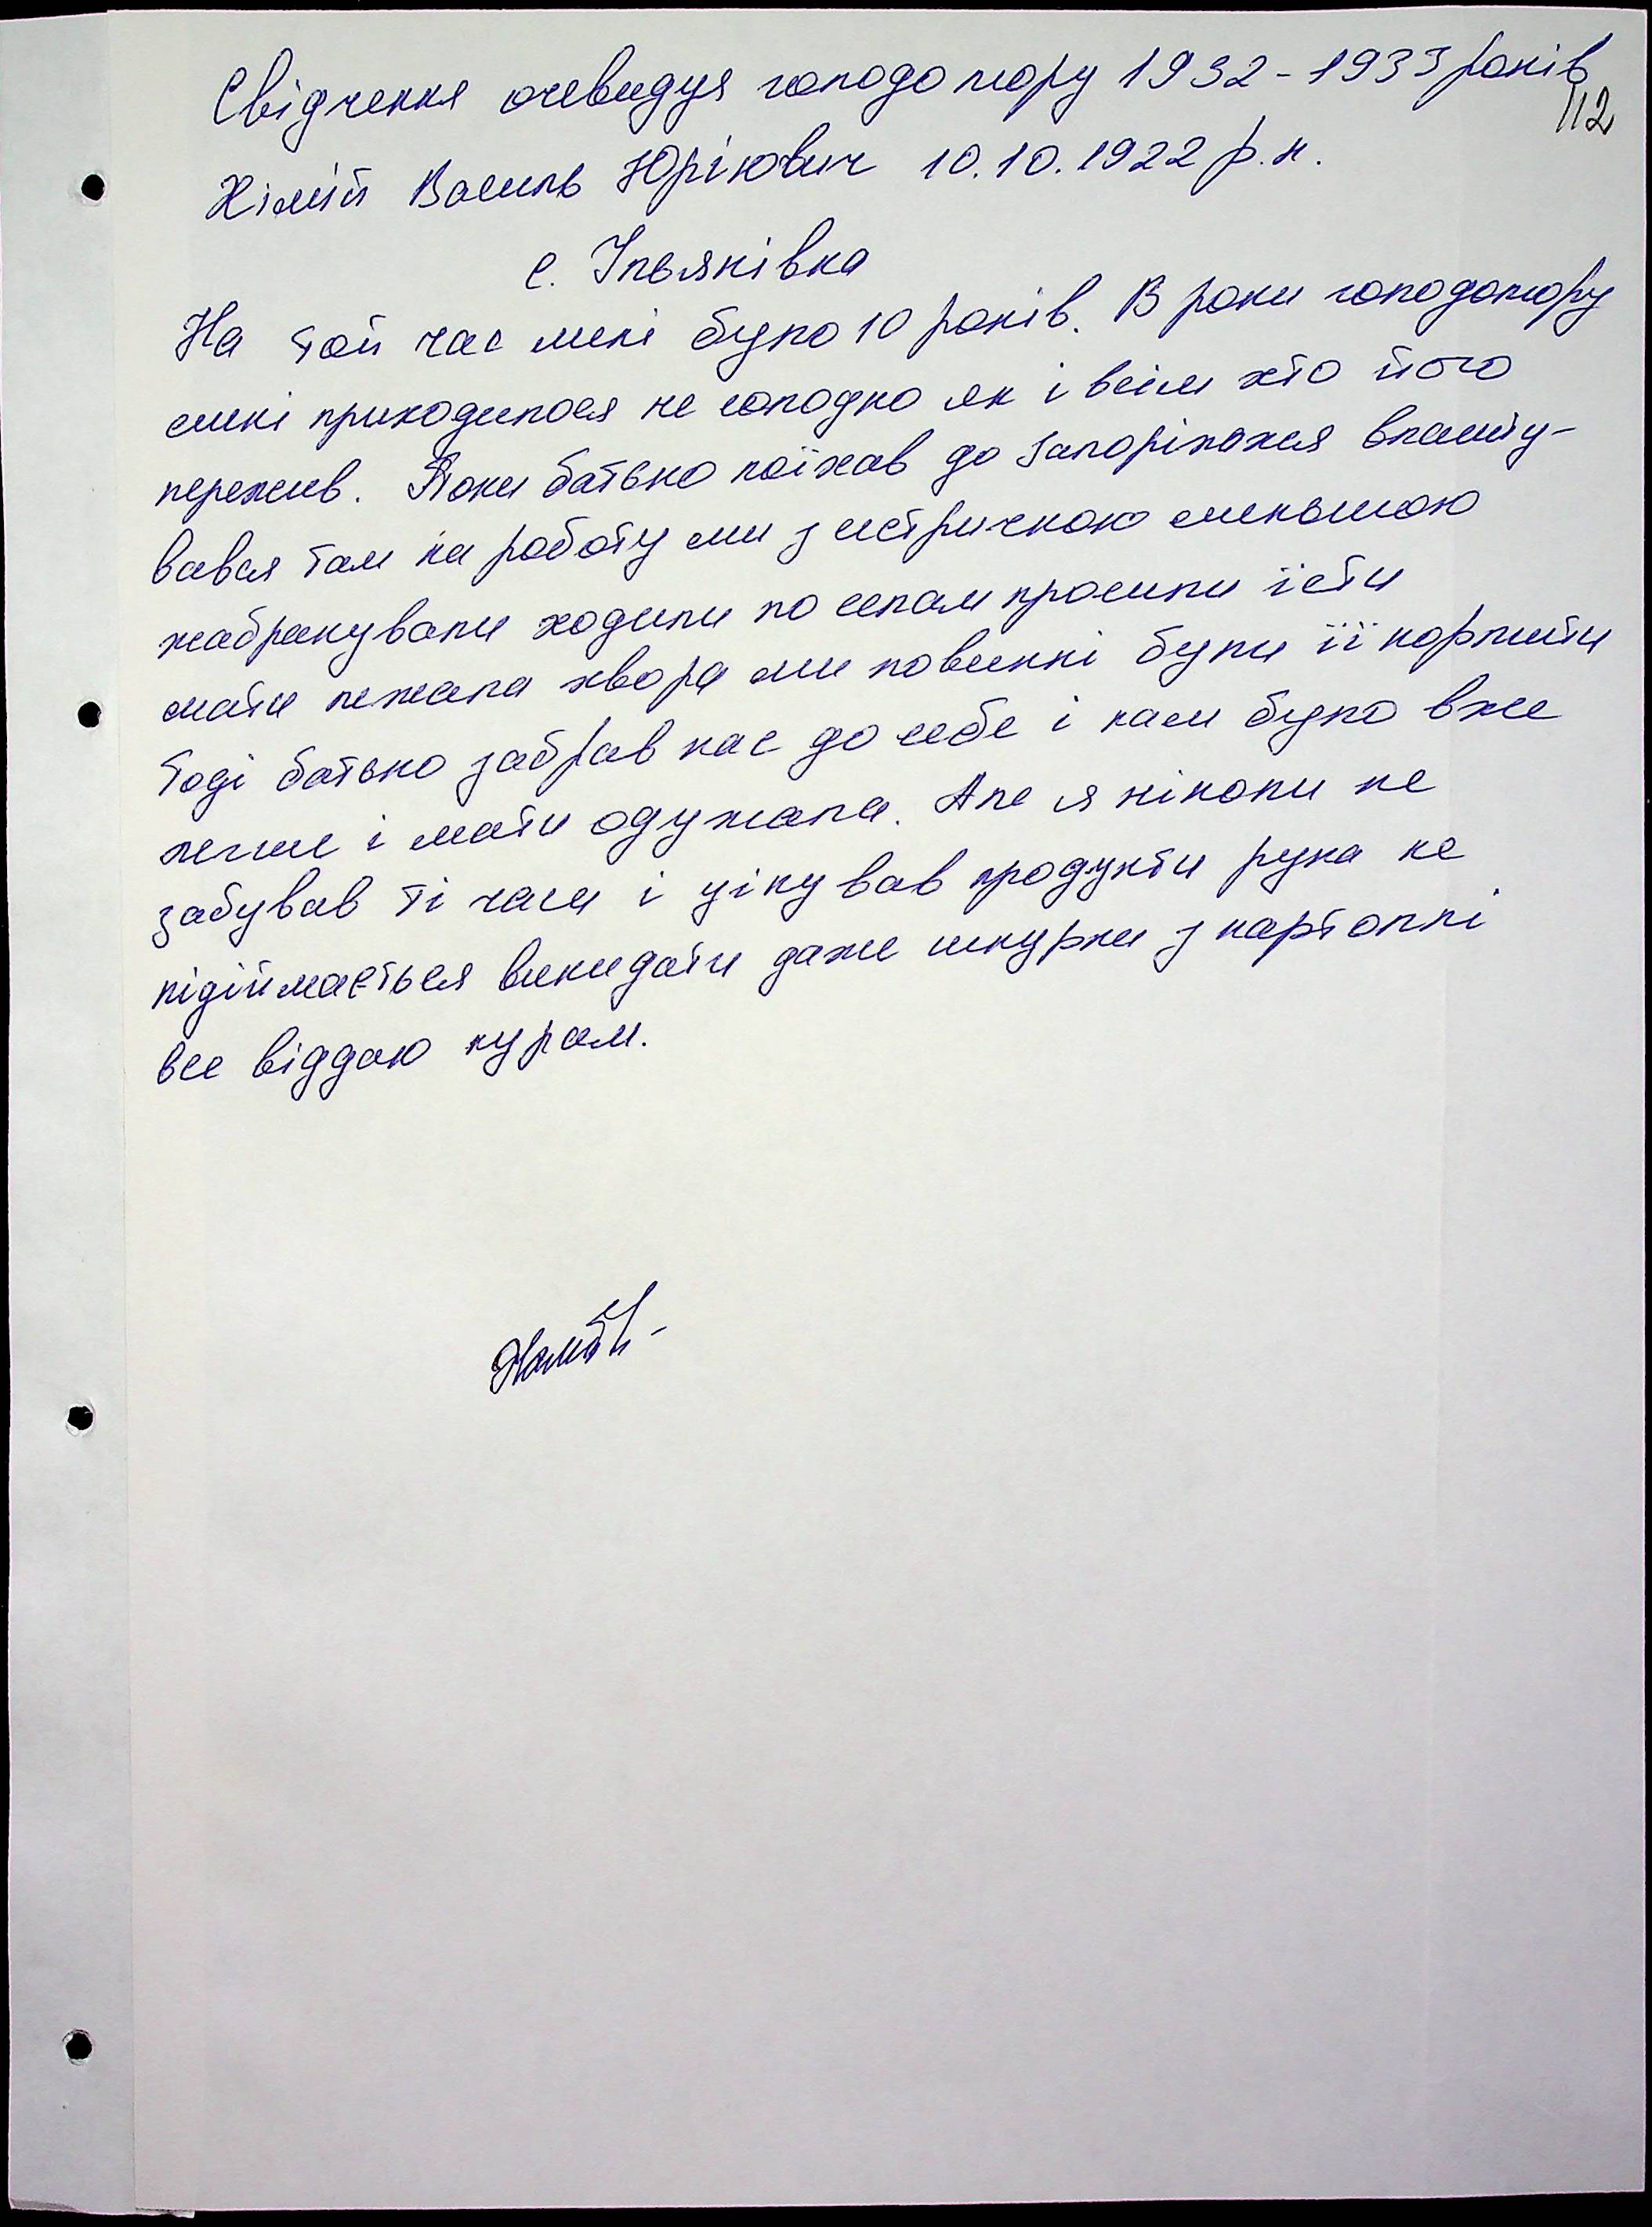 Свідчення очевидця голодомору 1932-1933 років
112
Хімій Василь Юрійович 10.10.1922 р.н.
с. Ульянівка
На той час мені було 10 років. В роки голодомору
мені приходилося не солодко як і всім хто його
пережив. Поки батько поїхав до Запоріжжя влашту-
вався там на роботу ми з сестричкою меньшою
жабракували ходили по селам просили їсти
мати лежала хвора ми повинні були її кормити
Тоді батько забрав нас до себе і нам було вже
легше і мати одужала. Але я ніколи не
забував ті часи і цінував продукти рука не
підіймається викидати даже шкурки з картоплі
все віддаю курам.